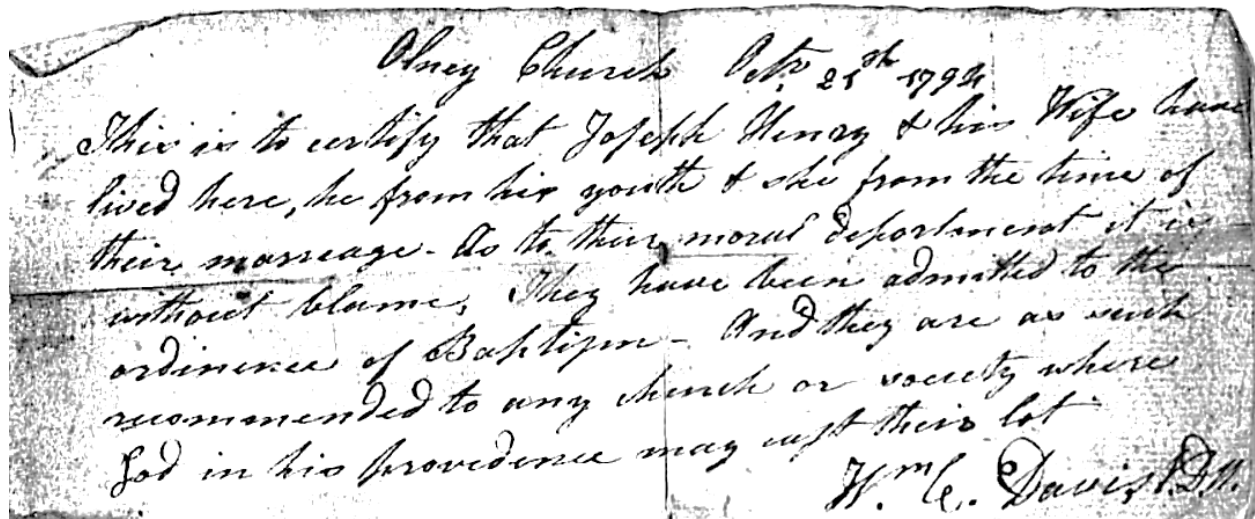 Olney Church Octr. 21st 1794
This is to certify that Joseph Henry & his Wife have
lived here, he from his youth & she from the time of
their marreage - As to their moral deportment it is
without blame, They have been admitted to the
ordinence of Baptism - And they are as such
recommended to any church or society where
God in his providence may cast their lot
Wm. C. Davis, V.D.M.